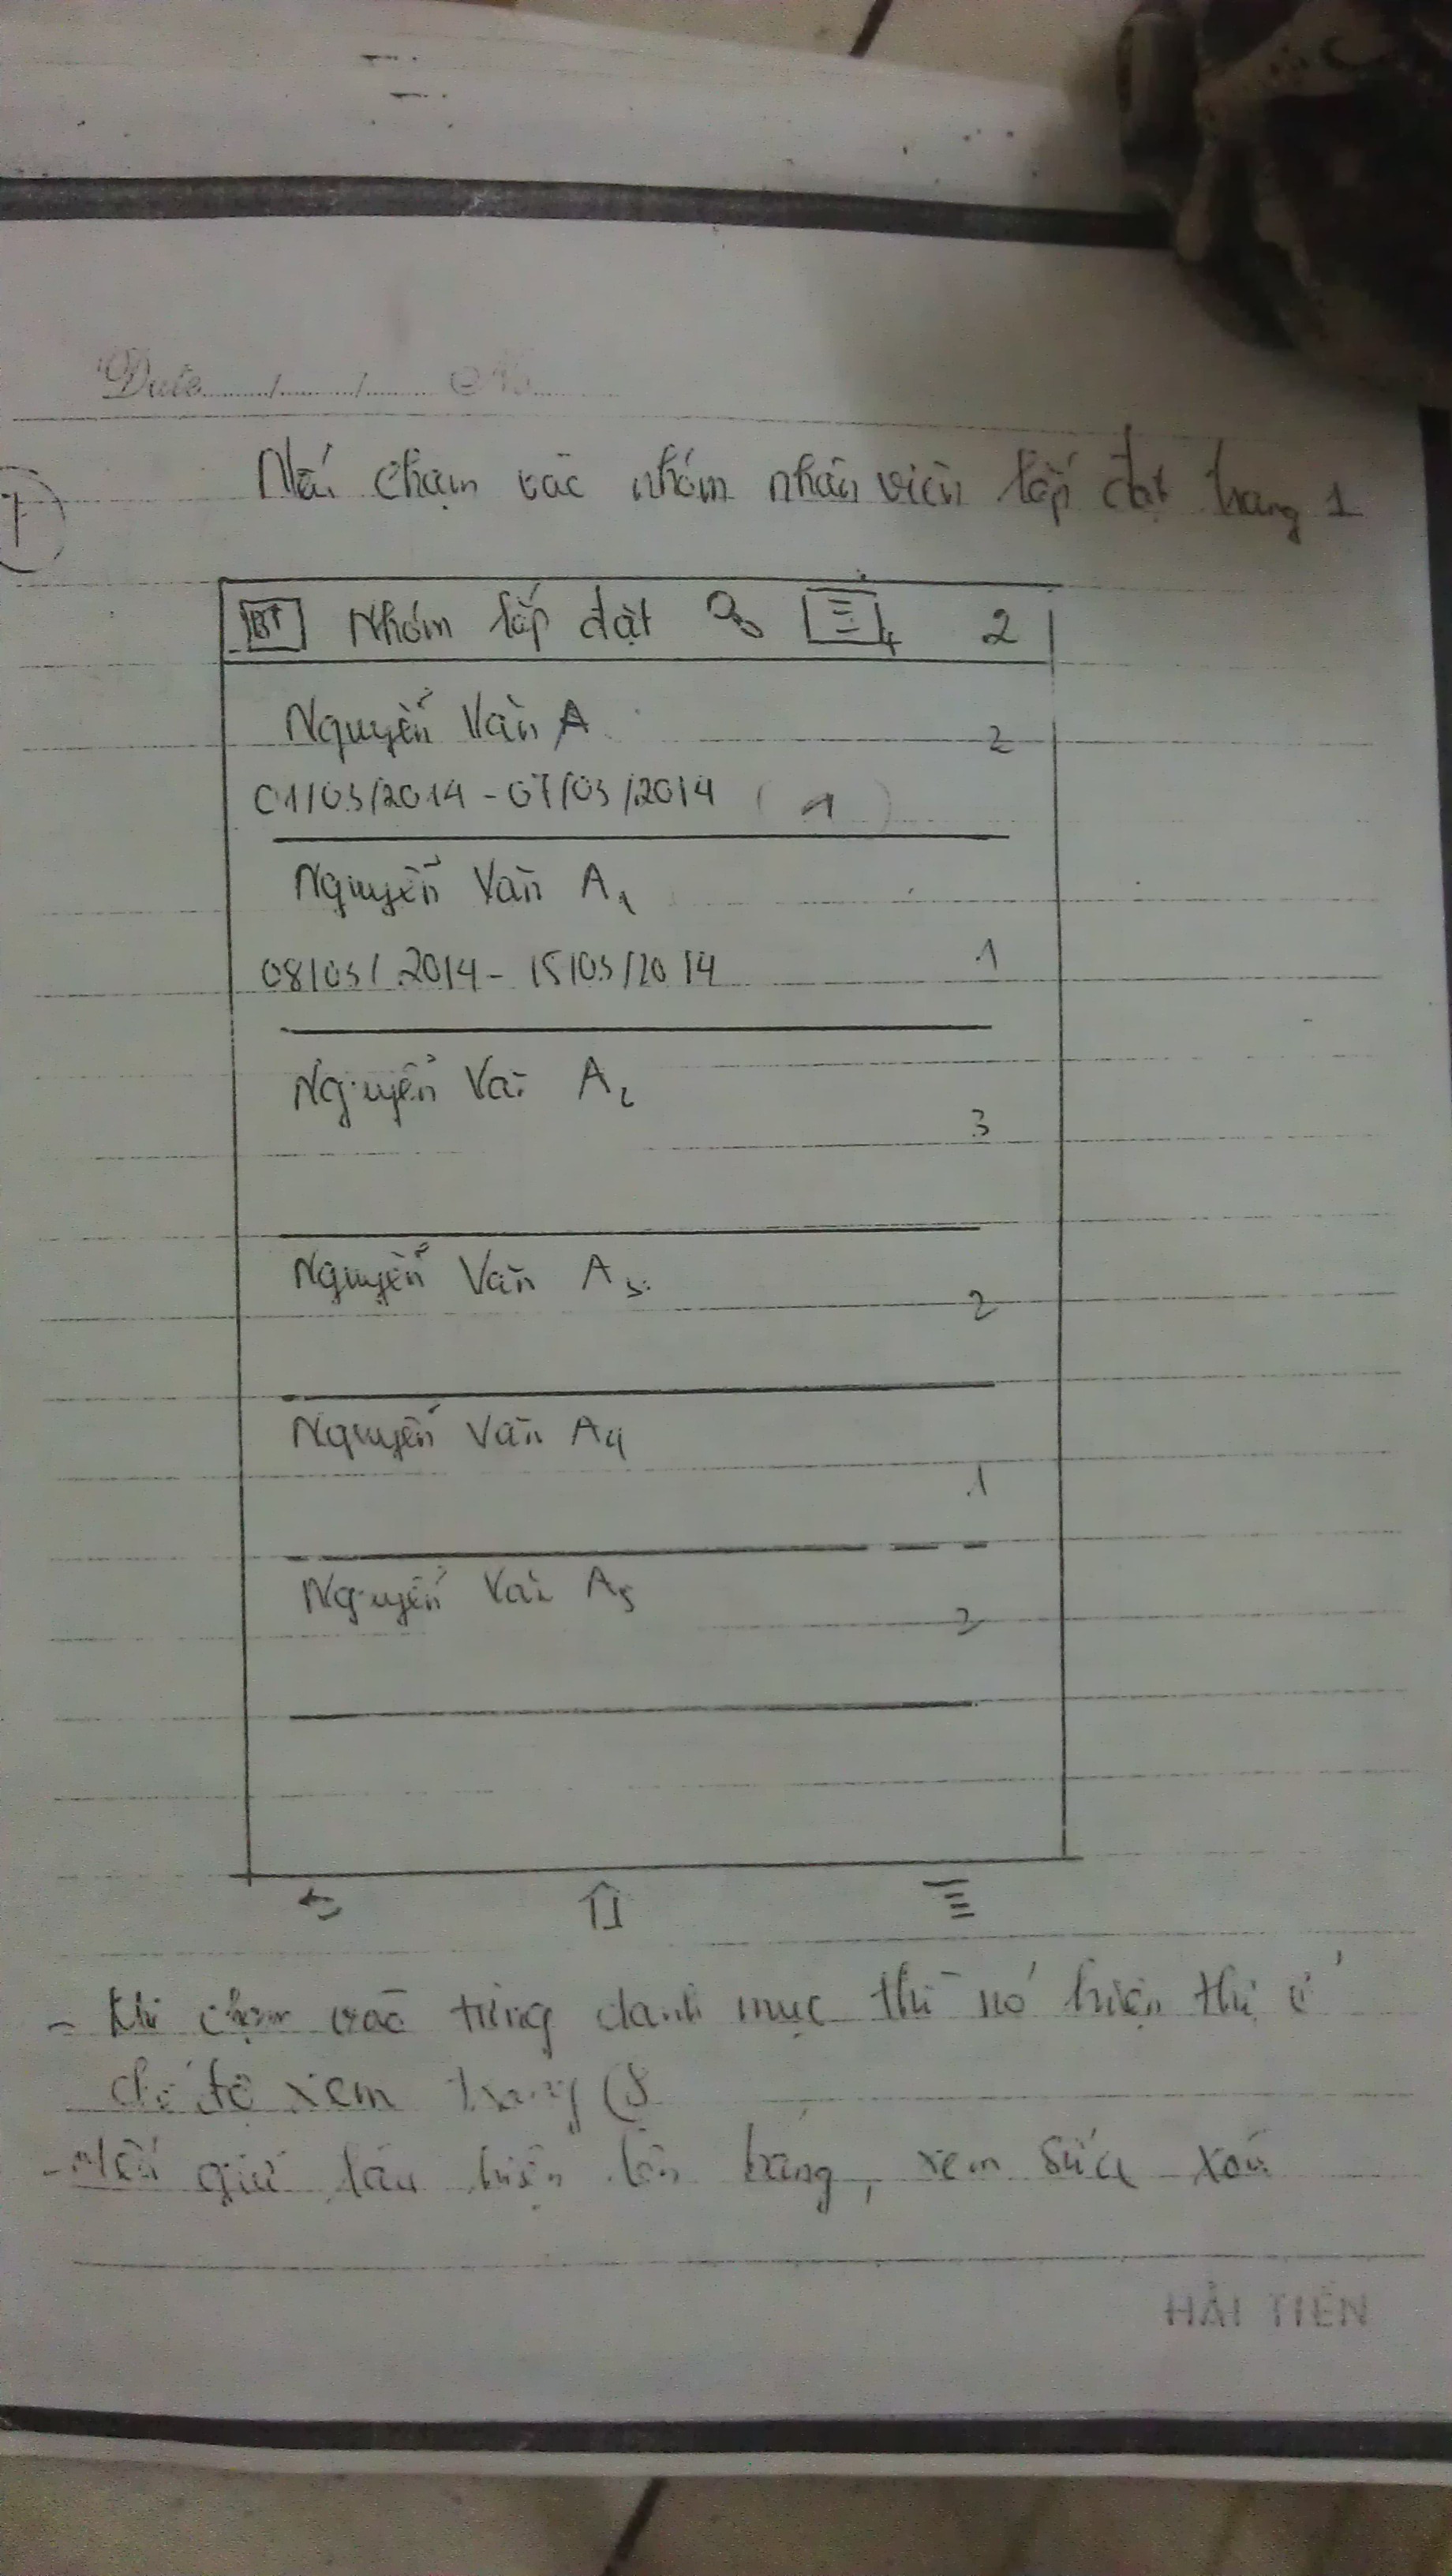 Date ....../....../...... No ......
7
Nếu chạm vào nhóm nhân viên lắp đặt trang 1
BT Nhóm lắp đặt 2
Nguyễn Văn A 2
01/03/2014 - 07/03/2014 (1)
Nguyễn Văn A1
08/03/2014 - 15/03/2014 1
Nguyễn Văn A2
3
Nguyễn Văn A3
2
Nguyễn Văn A4
1
Nguyễn Văn A5
2
- Khi chạm vào từng danh mục thì nó hiện thị ở
chế độ xem trang (8
- Nếu giữ lâu hiện lên bảng, xem sửa xoá
HẢI TIẾN